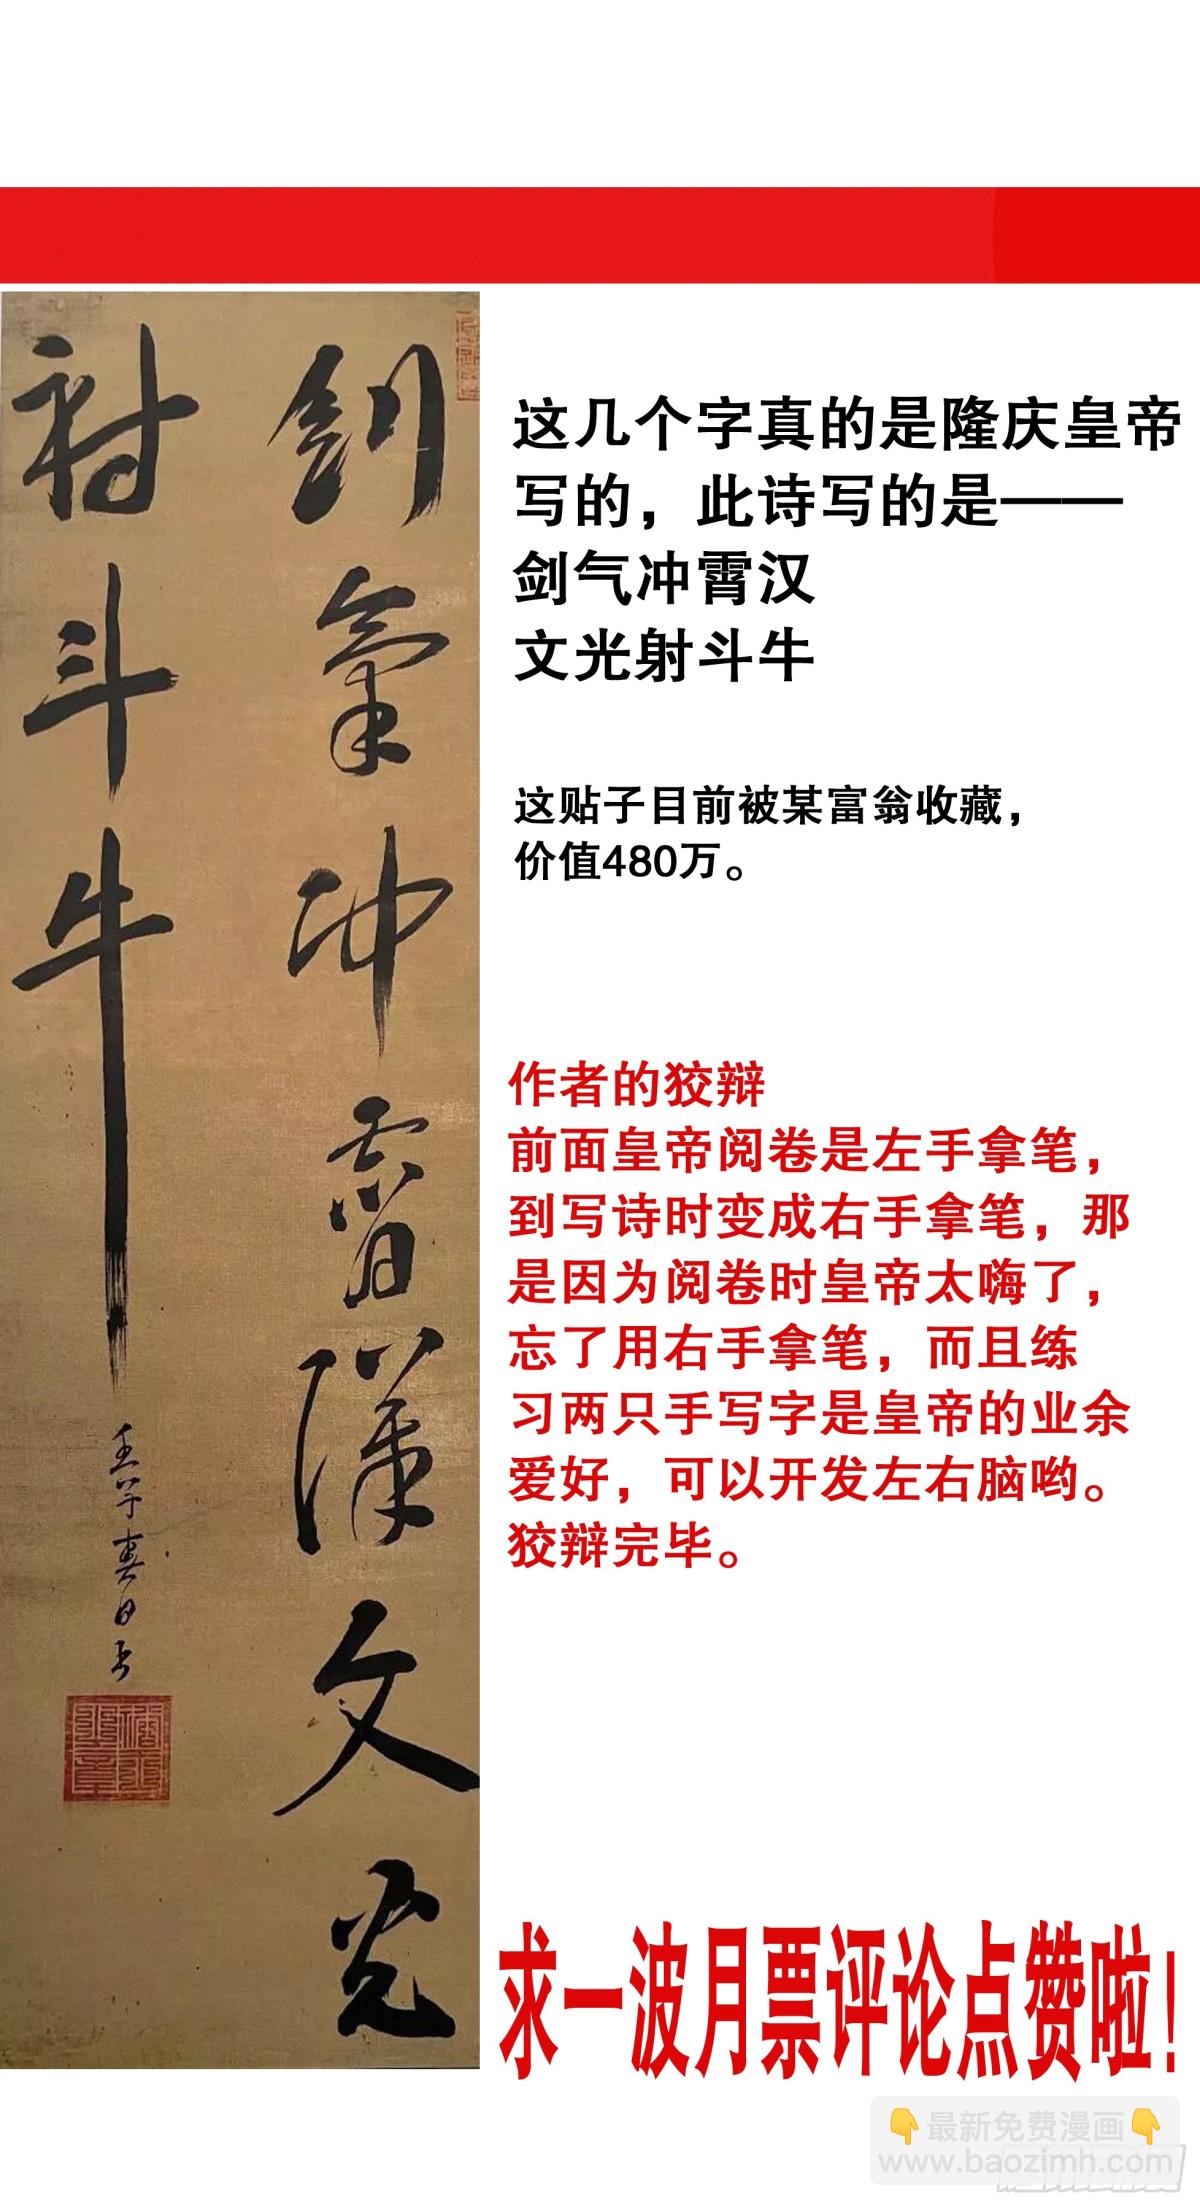 剑气冲霄汉文光
射斗牛
这几个字真的是隆庆皇帝
写的，此诗写的是——
剑气冲霄汉
文光射斗牛
这贴子目前被某富翁收藏，
价值480万。
作者的狡辩
前面皇帝阅卷是左手拿笔，
到写诗时变成右手拿笔，那
是因为阅卷时皇帝太嗨了，
忘了用右手拿笔，而且练
习两只手写字是皇帝的业余
爱好，可以开发左右脑哟。
狡辩完毕。
求一波月票评论点赞啦！
👇最新免费漫画👇
www.baozimh.com